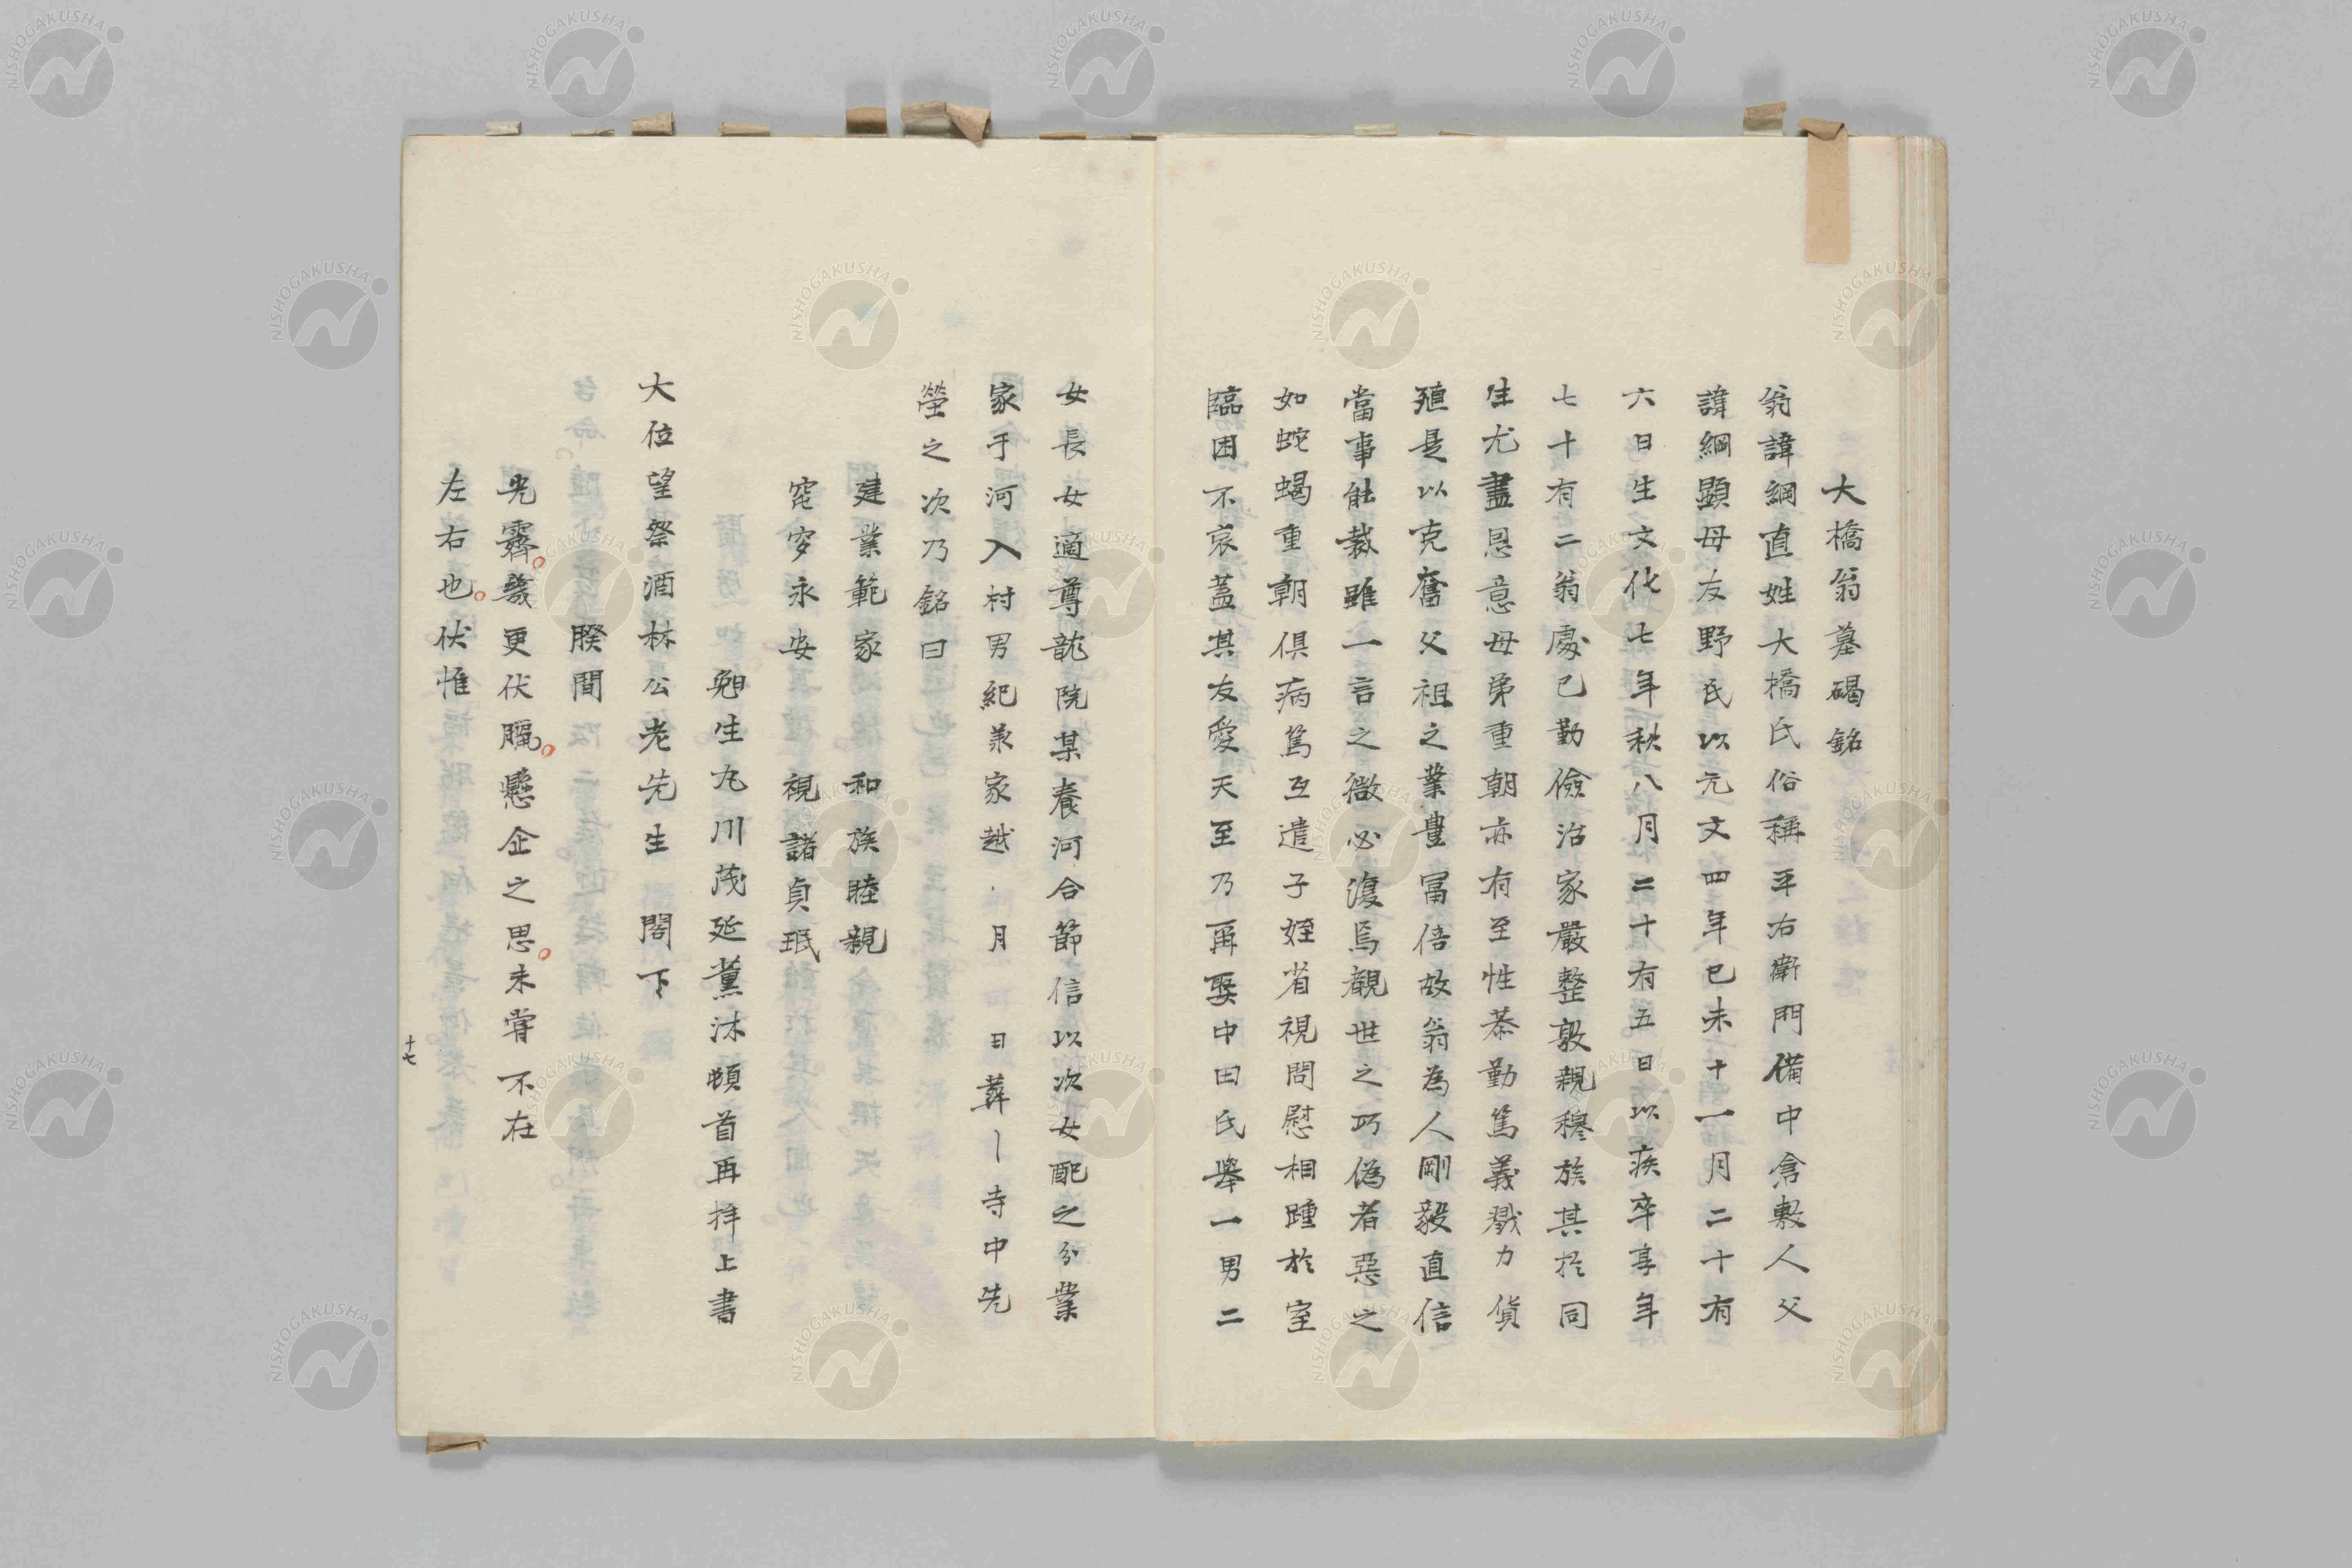 大橋翁墓碣銘
翁諱綱直姓大橋氏俗稱平右衛門備中倉敷人父
諱綱顯母友野氏以元文四年已未十一月二十有
六日生文化七年秋八月二十有五日以疾卒享年
七十有二翁處已勤儉治家嚴整敦親穆族其於同
生尤盡恩意母弟重朝亦有至性恭勤篤義戮力貨
殖是以克奮父祖之業豊冨倍故翁為人剛毅直信
當事能裁雖一言之微必復焉觀世之巧偽者惡之
如蛇蝎重朝俱病篤互遣子姪省視問慰相踵於室
臨困不哀蓋其友愛天至乃再娶中田氏舉一男二
女長女適尊龍院某養河合節信以次女配之分業
家于河入村男紀兼家越月日葬寺中先
塋之次乃銘曰
建業範家 和族睦親
窀穸永安 視諸貞珉
晚生丸川茂延薫沐頓首再拜上書
大位望祭酒林公老先生閣下
睽間
光霽幾更伏臘懸企之思未嘗不在
左右也伏惟
十七
NISHOGAKUSHA